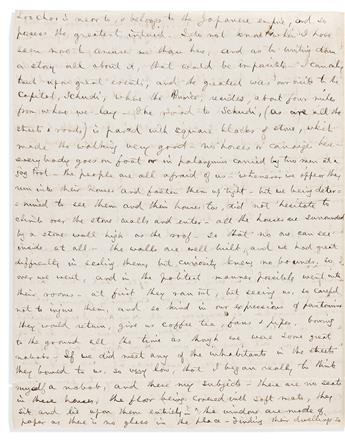 Loo Choo is near to, & belongs to the Japanese empire, and so
possess the greatest interest. I do not know when I have
seen more to amuse me than here, and as to writing down
a story all about it, that would be impossible. I can only
touch upon great events, and the greatest was our visit to the
Capital, Schudi, where the resides, about four miles
from where we lay - The road to Schudi, (as are all the
streets & roads) is paved with square blocks of stone, which
made the walking very good - no horses or carriage here -
every body goes on foot or in palanquins carried by two men at a
jog trot - the people are all afraid of us - whenever we appear they
run into their houses and fasten them up tight - but we being deter-
mined to see them and their houses too, did not hesitate to
climb over the stone walls and enter - all the houses are surrounded
by a stone wall high as the roof - so that no one can see
inside at all - the walls are well built, and we had great
difficulty in scaling them, but curiosity knew no bounds, so
over we went, and in the politest manner possible went into
their rooms - at first they ran out, but seeing us, so careful
not to injure them, and so kind in our expressions of pantomime
they would return, give us coffee tea, fans & pipes, bowing
to the ground all the time as though we were some great
nabobs - If we did meet any of the inhabitants in the streets
they bowed to us, so very low, that I began really to think
myself a nabob, and these my subjects - there are no seats
in these houses, the floor being covered with soft mats, they
sit and lie upon them entirely - the windows are made of
paper as there is no glass in the place - finding their dwellings so